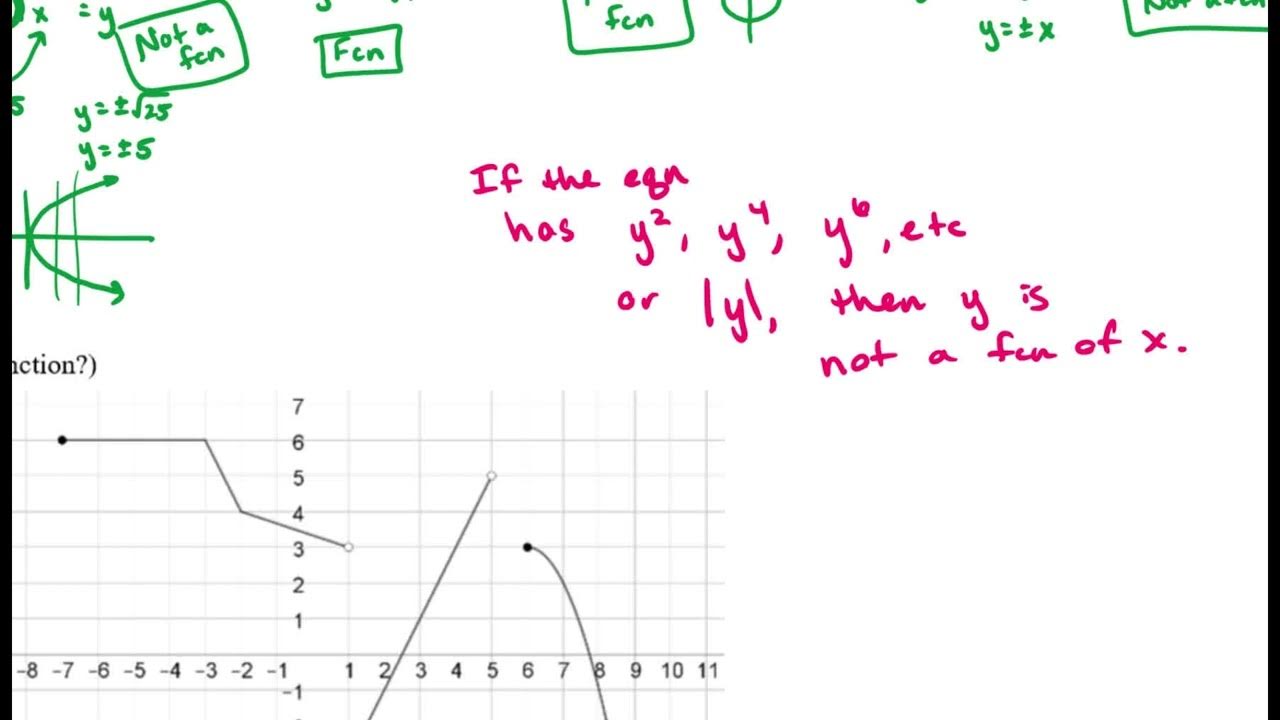 x = y
Not a
fcn
Fcn
fcn
y = ± x
5
y = ±√25
y = ±5
If the eqn
has y², y⁴, y⁶, etc
or |y|, then y is
not a fcn of x.
nction?)
7
6
5
4
3
2
1
-8 -7 -6 -5 -4 -3 -2 -1 1 2 3 4 5 6 7 8 9 10 11
-1